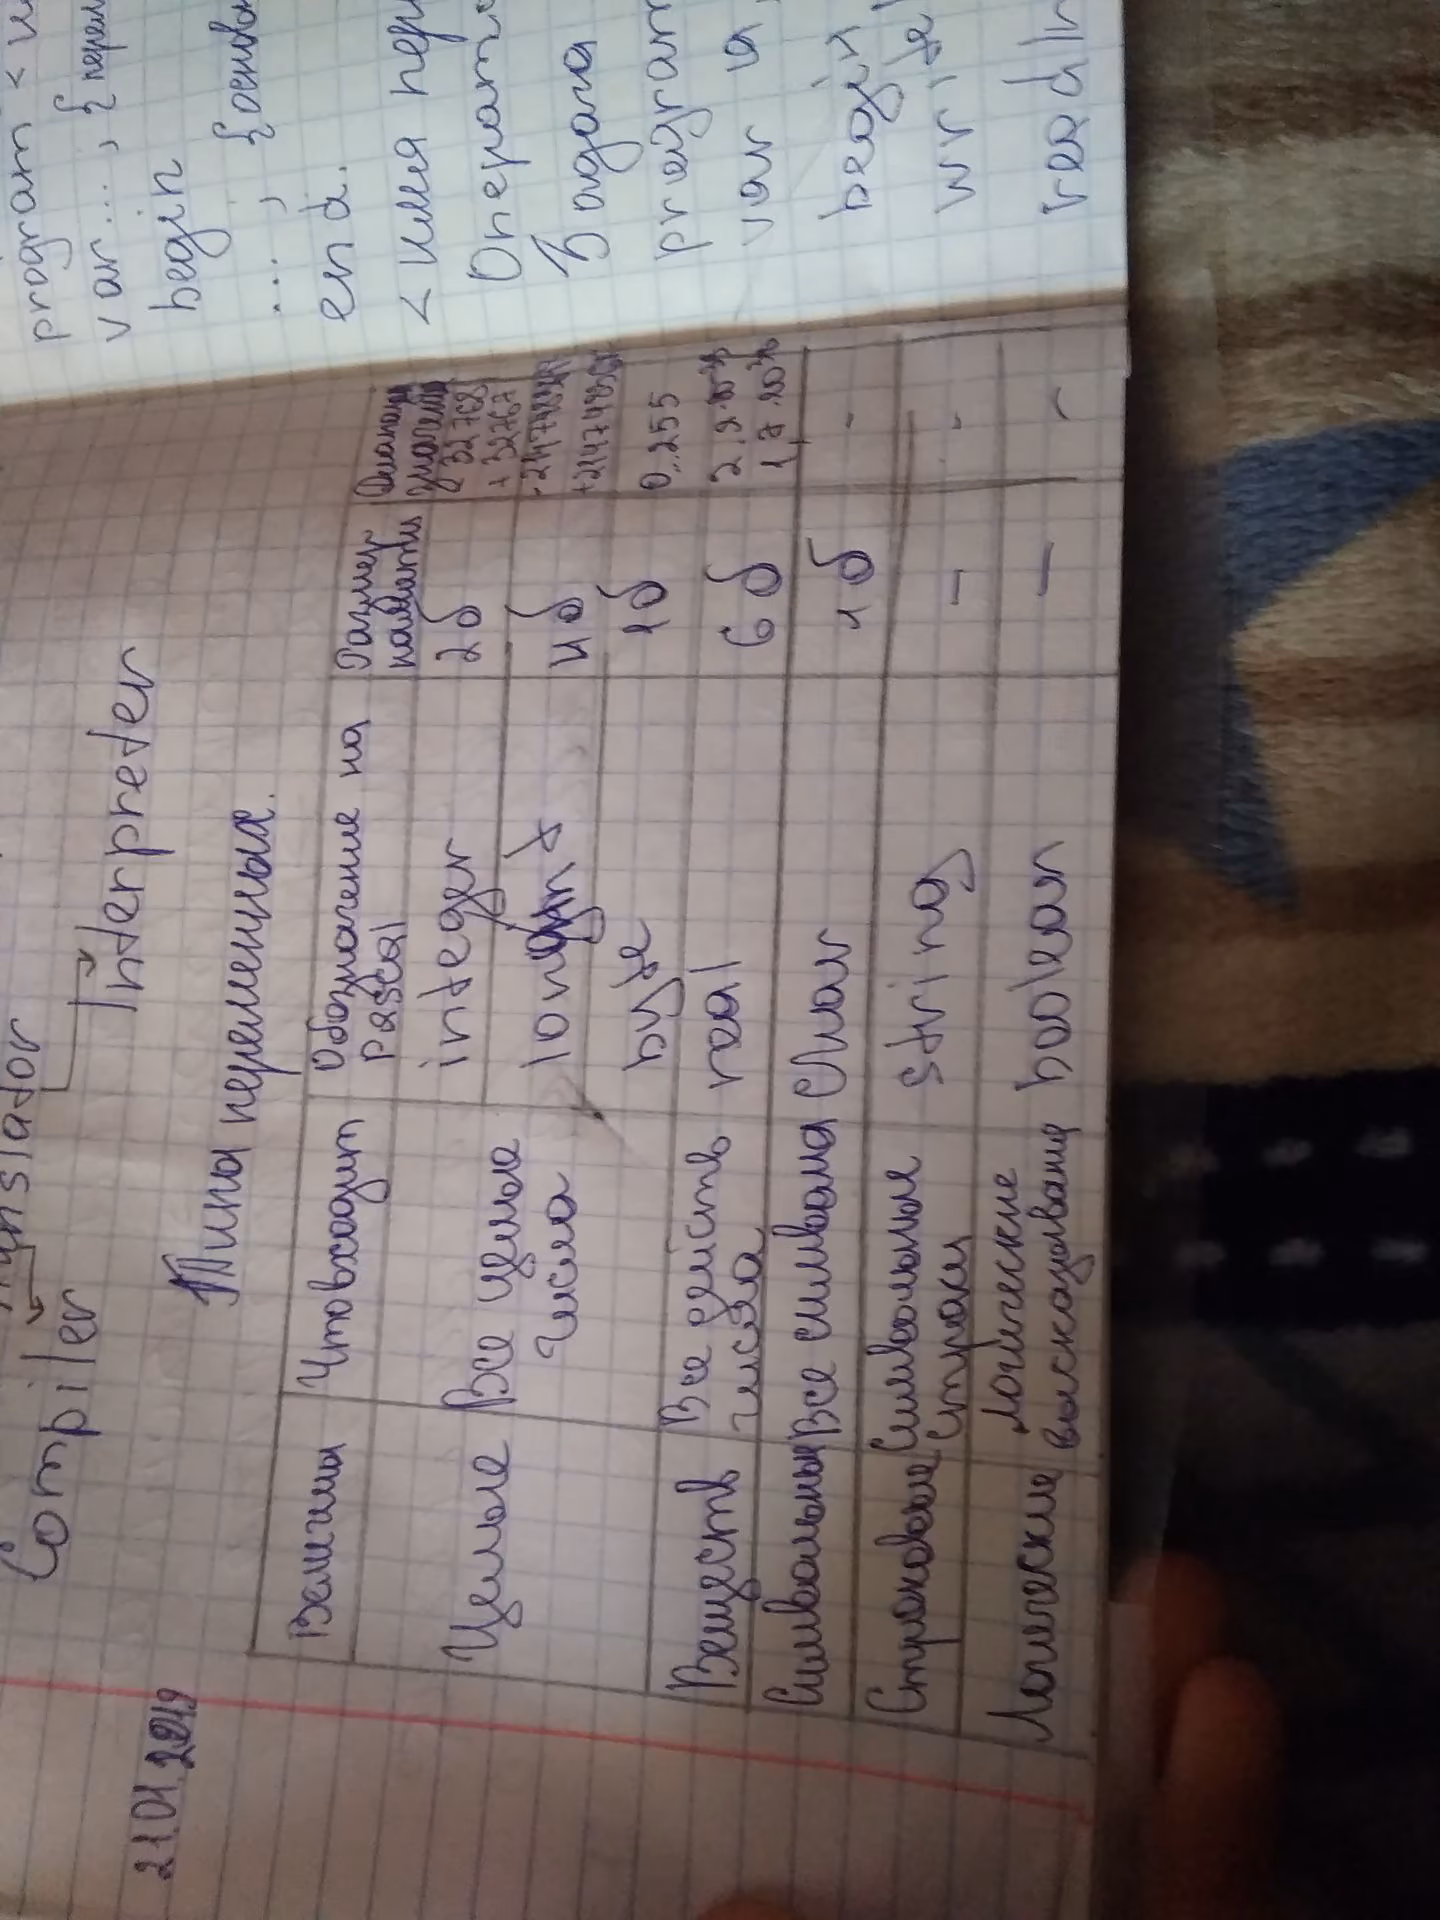 Compiler
Interpreter
21.01.2019
Типы переменных.
Величины Что входит Обозначение на Pascal Размер памяти Диапазон значений
Целые Все целые числа integer 2б - 32768 + 32767
longint 4б
byte 1б 0..255
Веществ Все действ числа real 6б
Символьные Все символы Char 1б -
Строковые Символьные строки string - -
Логические логические высказывания boolean - -
program <
var ... ,
begin
... ;
end.
< имя
Задача
program
var a,
begin
write
readln